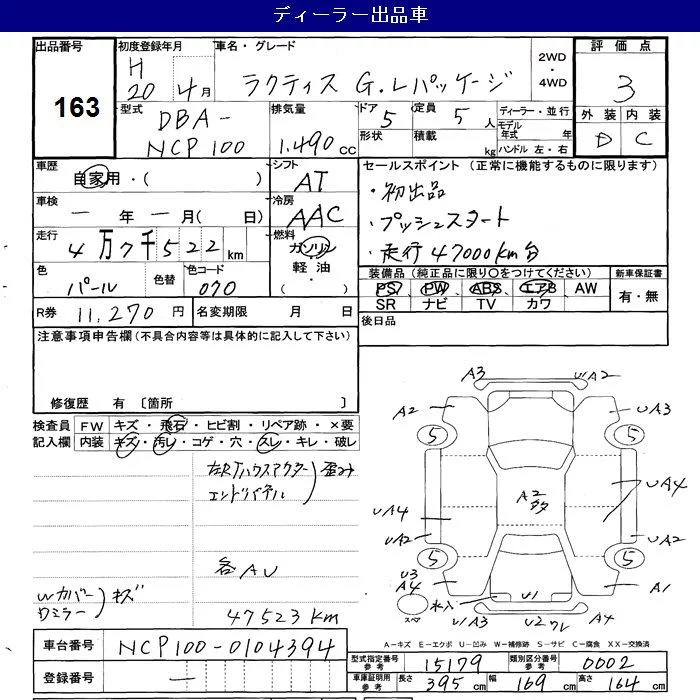 ディーラー出品車
出品番号 163
初度登録年月 H 20 年 4 月
車名・グレード ラクティス G.Lパッケージ
2WD ・ 4WD
評価点 3
外装 内装
D C
型式 DBA-
NCP100
排気量 1.490 cc
ドア 5
形状
定員 5 人
積載 kg
ディーラー・並行
モデル年式 年
ハンドル 左・右
車歴 自家用・( )
シフト AT
車検 ー 年 ー 月( 日)
冷房 AAC
走行 4万7千522 km
燃料 ガソリン
軽油・
( )
色 パール 色替
色コード 070
R券 11,270 円
名変期限 月 日
セールスポイント(正常に機能するものに限ります)
・初出品
・プッシュスタート
・走行47000km台
装備品(純正品に限り○をつけてください)
PS、PW、ABS、エアB、AW
SR ナビ TV カワ
新車保証書
有・無
後日品
注意事項申告欄(不具合内容等は具体的に記入して下さい)
修復歴 有 〔箇所 〕
検査員記入欄
FW キズ・飛石・ヒビ割・リペア跡・×要
内装 キズ・汚レ・コゲ・穴・スレ・キレ・破レ
エンドパネル
歪み
各AU
Wカバー
Wミラー
キズ
47523km
A3 A2
A2 UA3
5 5
A2
多
UA4 UA4
UA2 UA2
5 5
U3
A4 A1
水入 U1
スペア
U1A3 U2ワレ A4
A-キズ E-エクボ U-凹み W-補修跡 S-サビ C-腐食 XX-交換済
車台番号 NCP100-0104394
登録番号 ー
型式指定番号 参考 15179
類別区分番号 参考 0002
車庫証明用 参考 長さ 395 cm 幅 169 cm 高さ 164 cm